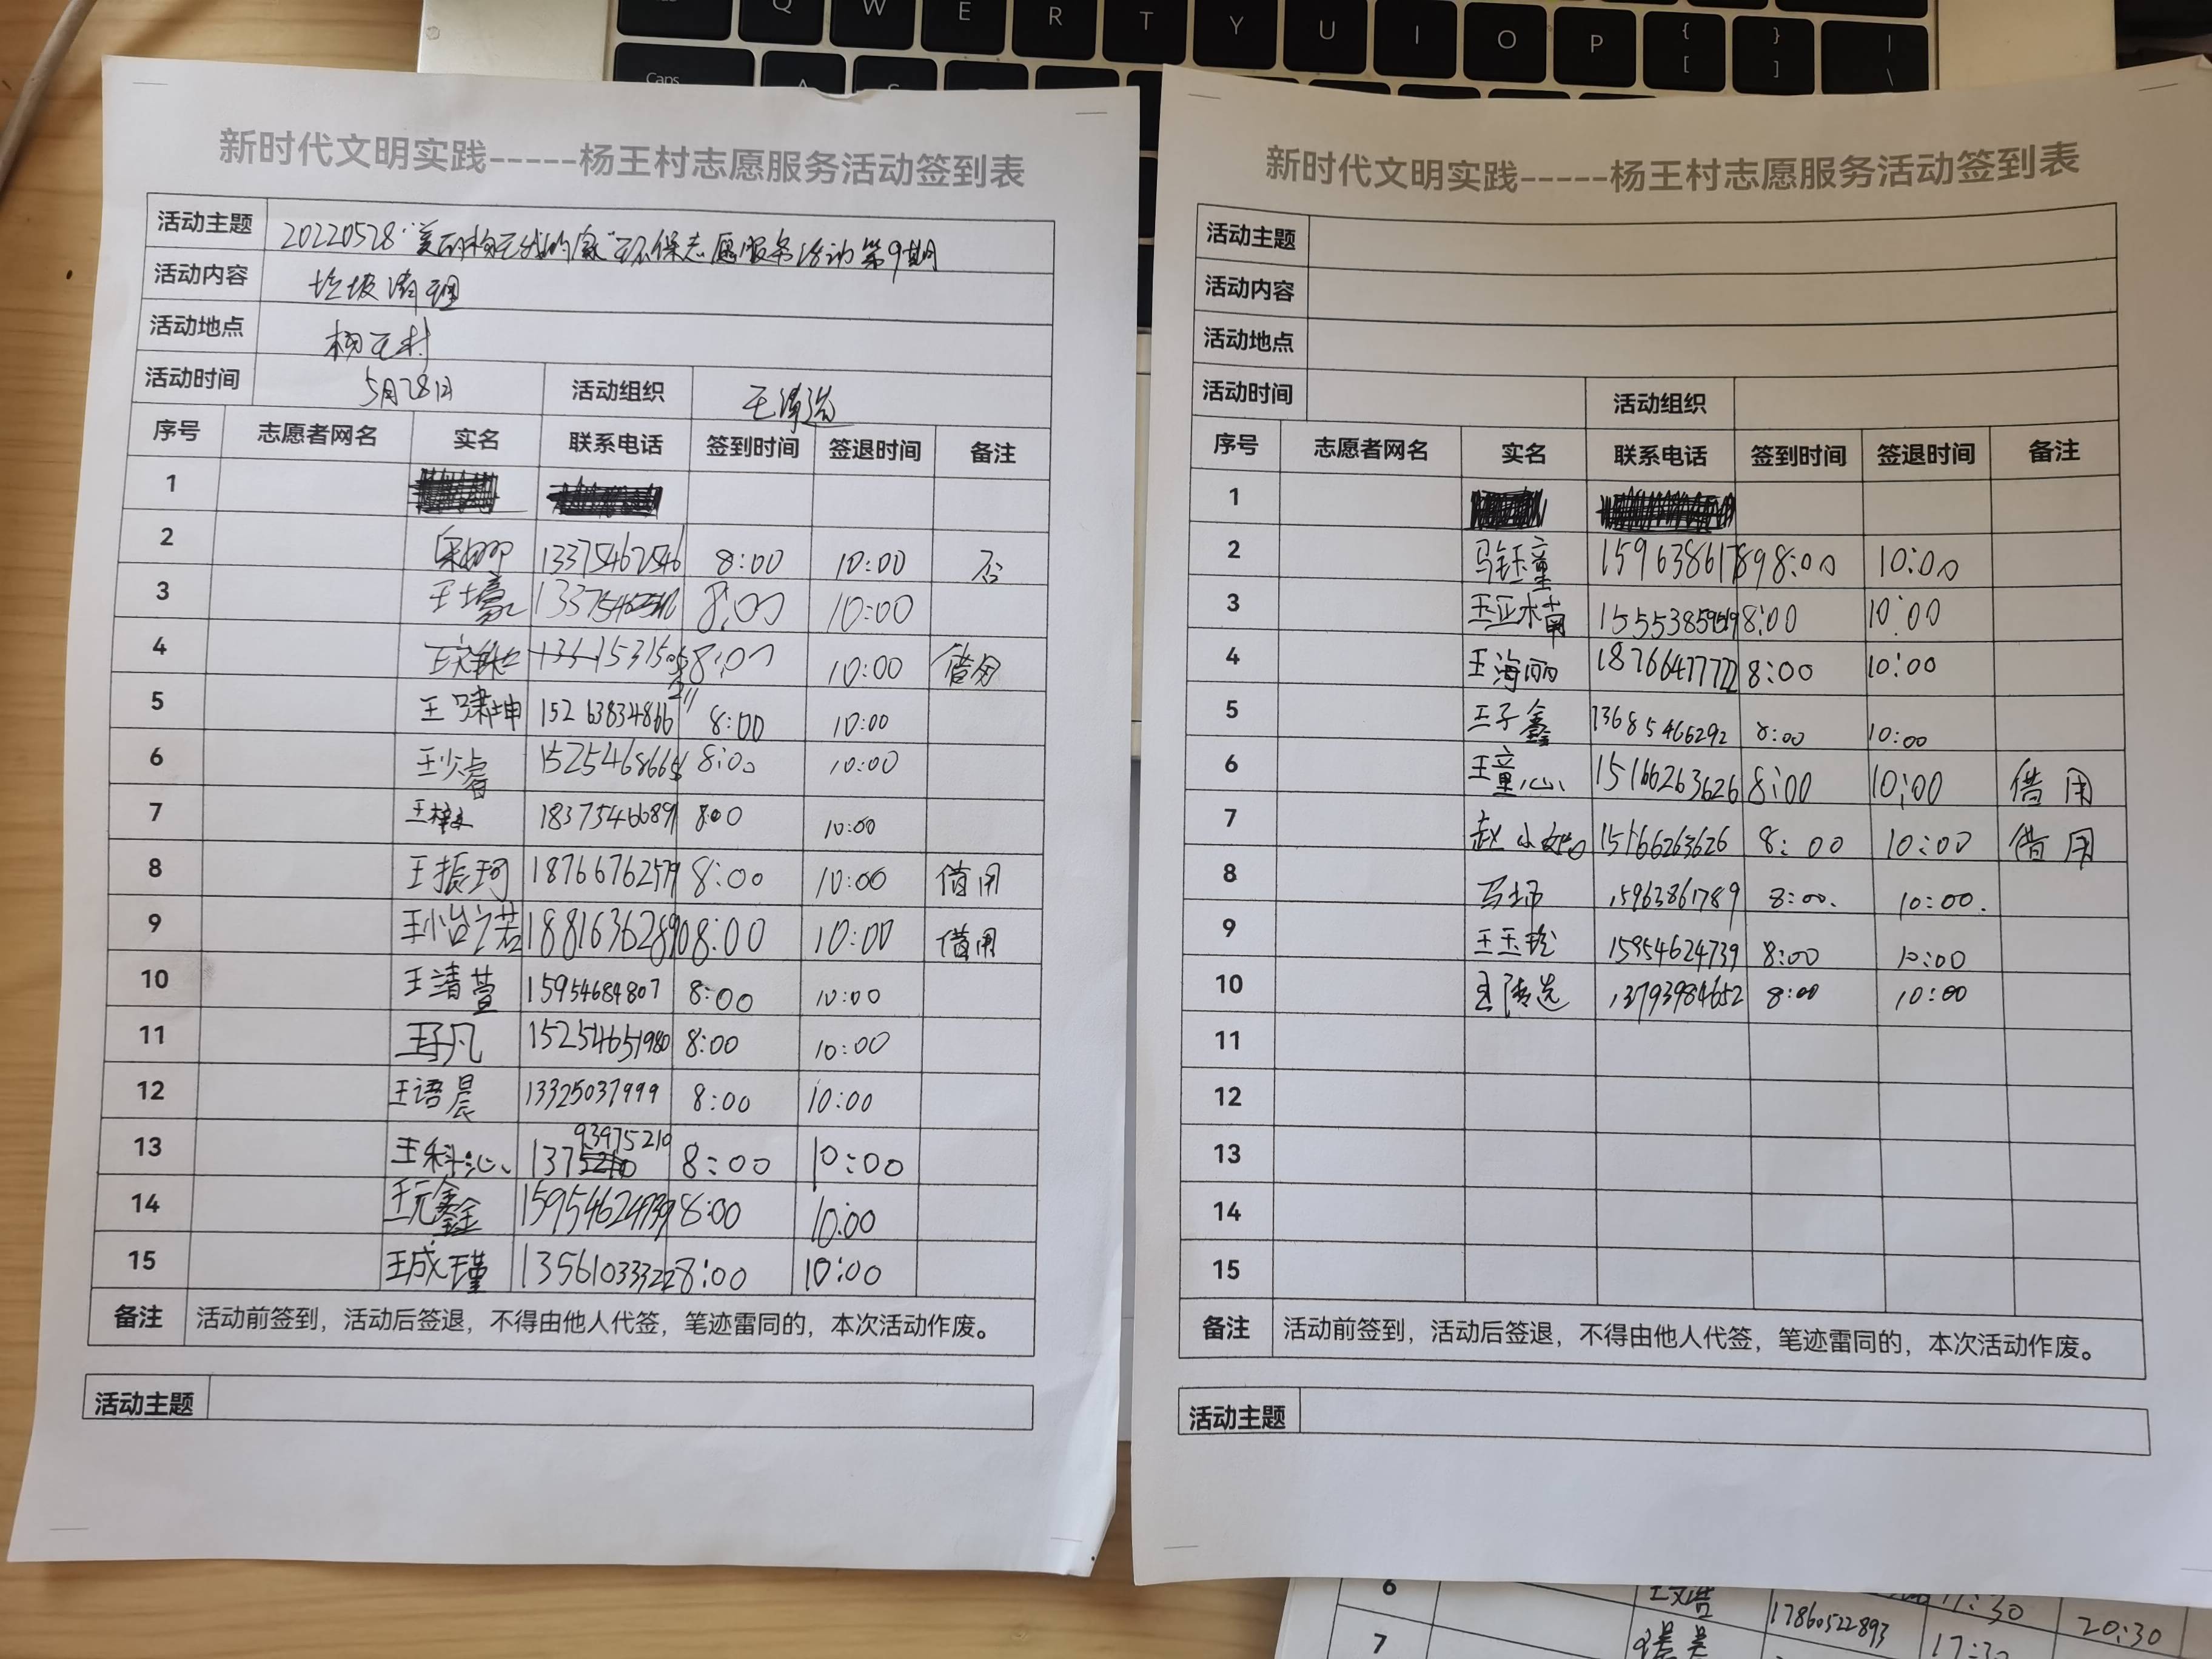 Q W E R T Y U I O P { [ } ] | \
Caps A S
新时代文明实践-----杨王村志愿服务活动签到表
活动主题 20220528"美丽杨王我的家"环保志愿服务活动第9期
活动内容 垃圾清理
活动地点 杨王村
活动时间 5月28日 活动组织
序号 志愿者网名 实名 联系电话 签到时间 签退时间 备注
1
2 13375462546 8:00 10:00 否
3 8:00 10:00
4 8:00 10:00 借用
5 王啸坤 15263834866 8:00 10:00
6 王少睿 8:00 10:00
7 18375466891 8:00 10:00
8 王振珂 18766762579 8:00 10:00 借用
9 18816362890 8:00 10:00 借用
10 王清萱 15954684807 8:00 10:00
11 王子凡 15254651980 8:00 10:00
12 王语晨 13325037999 8:00 10:00
13 王科沁 137 93975210 8:00 10:00
14 王元鑫 15954624739 8:00 10:00
15 王成瑾 13561033322 8:00 10:00
备注 活动前签到，活动后签退，不得由他人代签，笔迹雷同的，本次活动作废。
活动主题
新时代文明实践-----杨王村志愿服务活动签到表
活动主题
活动内容
活动地点
活动时间 活动组织
序号 志愿者网名 实名 联系电话 签到时间 签退时间 备注
1
2 马钰童 15963861789 8:00 10:00
3 王亚楠 8:00 10:00
4 王海丽 18766477722 8:00 10:00
5 王子鑫 13685466292 8:00 10:00
6 王童心 15166263626 8:00 10:00 借用
7 赵小 15166263626 8:00 10:00 借用
8 15963861789 8:00. 10:00.
9 王玉珍 15954624739 8:00 10:00
10 13793984652 8:00 10:00
11
12
13
14
15
备注 活动前签到，活动后签退，不得由他人代签，笔迹雷同的，本次活动作废。
活动主题
6 王文浩 17860522893 17:30 20:30
7 17:30